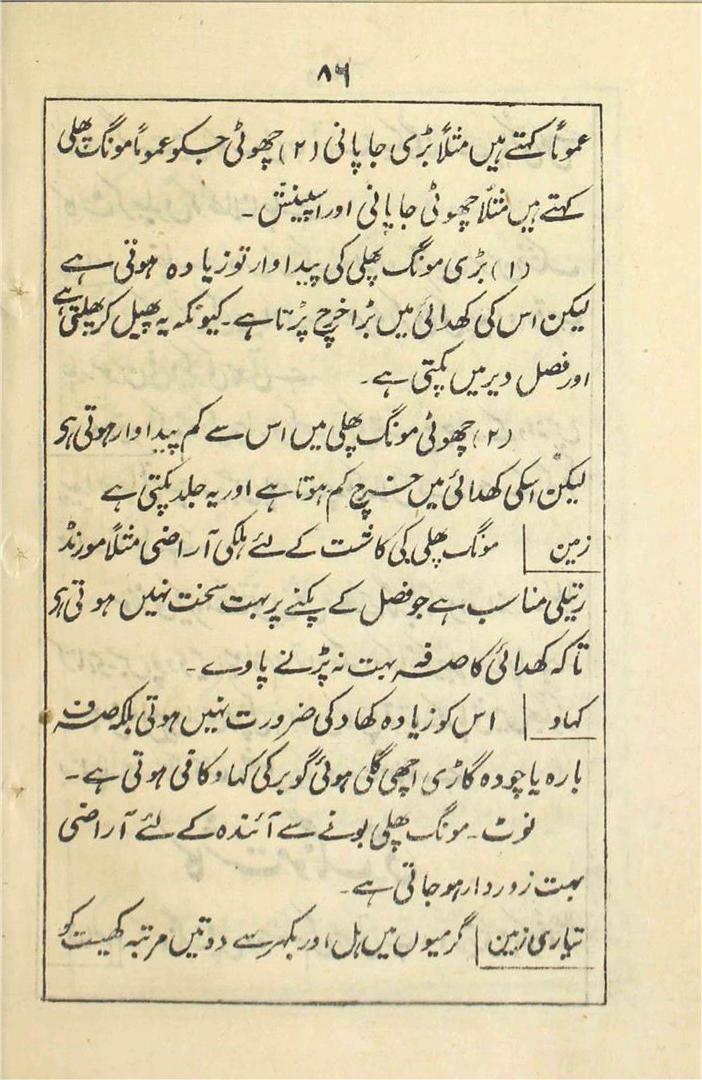 ۸۶
عموماً کہتے ہیں مثلاً بڑی جاپانی (۲) چھوٹی جسکو عموماً مونگ پھلی
کہتے ہیں مثلاً چھوٹی جاپانی اور اسپینش۔
(۱) بڑی مونگ پھلی کی پیداوار تو زیادہ ہوتی ہے
لیکن اس کی کھدائی میں بڑا خرچ پڑتا ہے۔ کیونکہ یہ پھیل کر پھلتی ہے
اور فصل دیر میں پکتی ہے۔
(۲) چھوٹی مونگ پھلی میں اس سے کم پیداوار ہوتی ہی
لیکن اسکی کھدائی میں خرچ کم ہوتا ہے اور یہ جلد پکتی ہے
زمین | مونگ پھلی کی کاشت کے لئے ہلکی آراضی مثلاً مورنڈ
رتیلی مناسب ہے جو فصل کے پکنے پر بہت سخت نہیں ہوتی ہی
تاکہ کھدائی کا صرفہ بہت نہ پڑنے پاوے۔
کہاد | اس کو زیادہ کھاد کی ضرورت نہیں ہوتی بلکہ صرف
بارہ یا چودہ گاڑی اچھی گلی ہوئی گوبر کی کہاد کافی ہوتی ہے۔
نوٹ۔ مونگ پھلی بونے سے آئندہ کے لئے آراضی
بہت زوردار ہوجاتی ہے۔
تیاری زمین | گرمیوں میں ہل اور بکہر سے دو تین مرتبہ کھیت کو